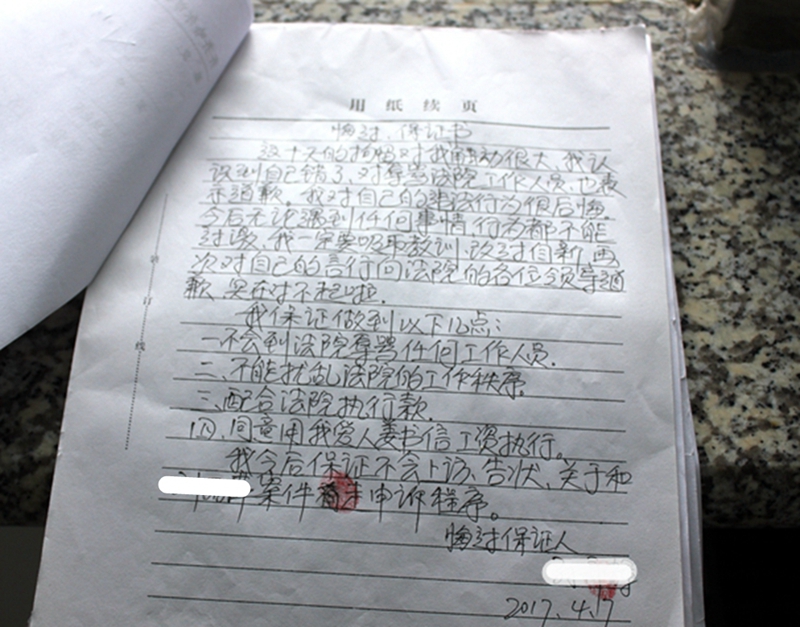 用纸续页
悔过、保证书
这十天的拘留对我触动很大、我认
识到自己错了、对辱骂法院工作人员、也表
示道歉。我对自己的违法行为很后悔、
今后无论遇到任何事情、行为都不能
过激、我一定要吸取教训、改过自新、再
次对自己的言行向法院的各位领导道
歉、实在对不起啦.
我保证做到以下几点:
一不会到法院辱骂任何工作人员.
二、不能扰乱法院的工作秩序。
三、配合法院执行款.
四、同意用我爱人姜书信工资执行。
我今后保证不会上访、告状、关于和
案件 申诉程序。
悔过保证人
2017.4.17
装
订
线